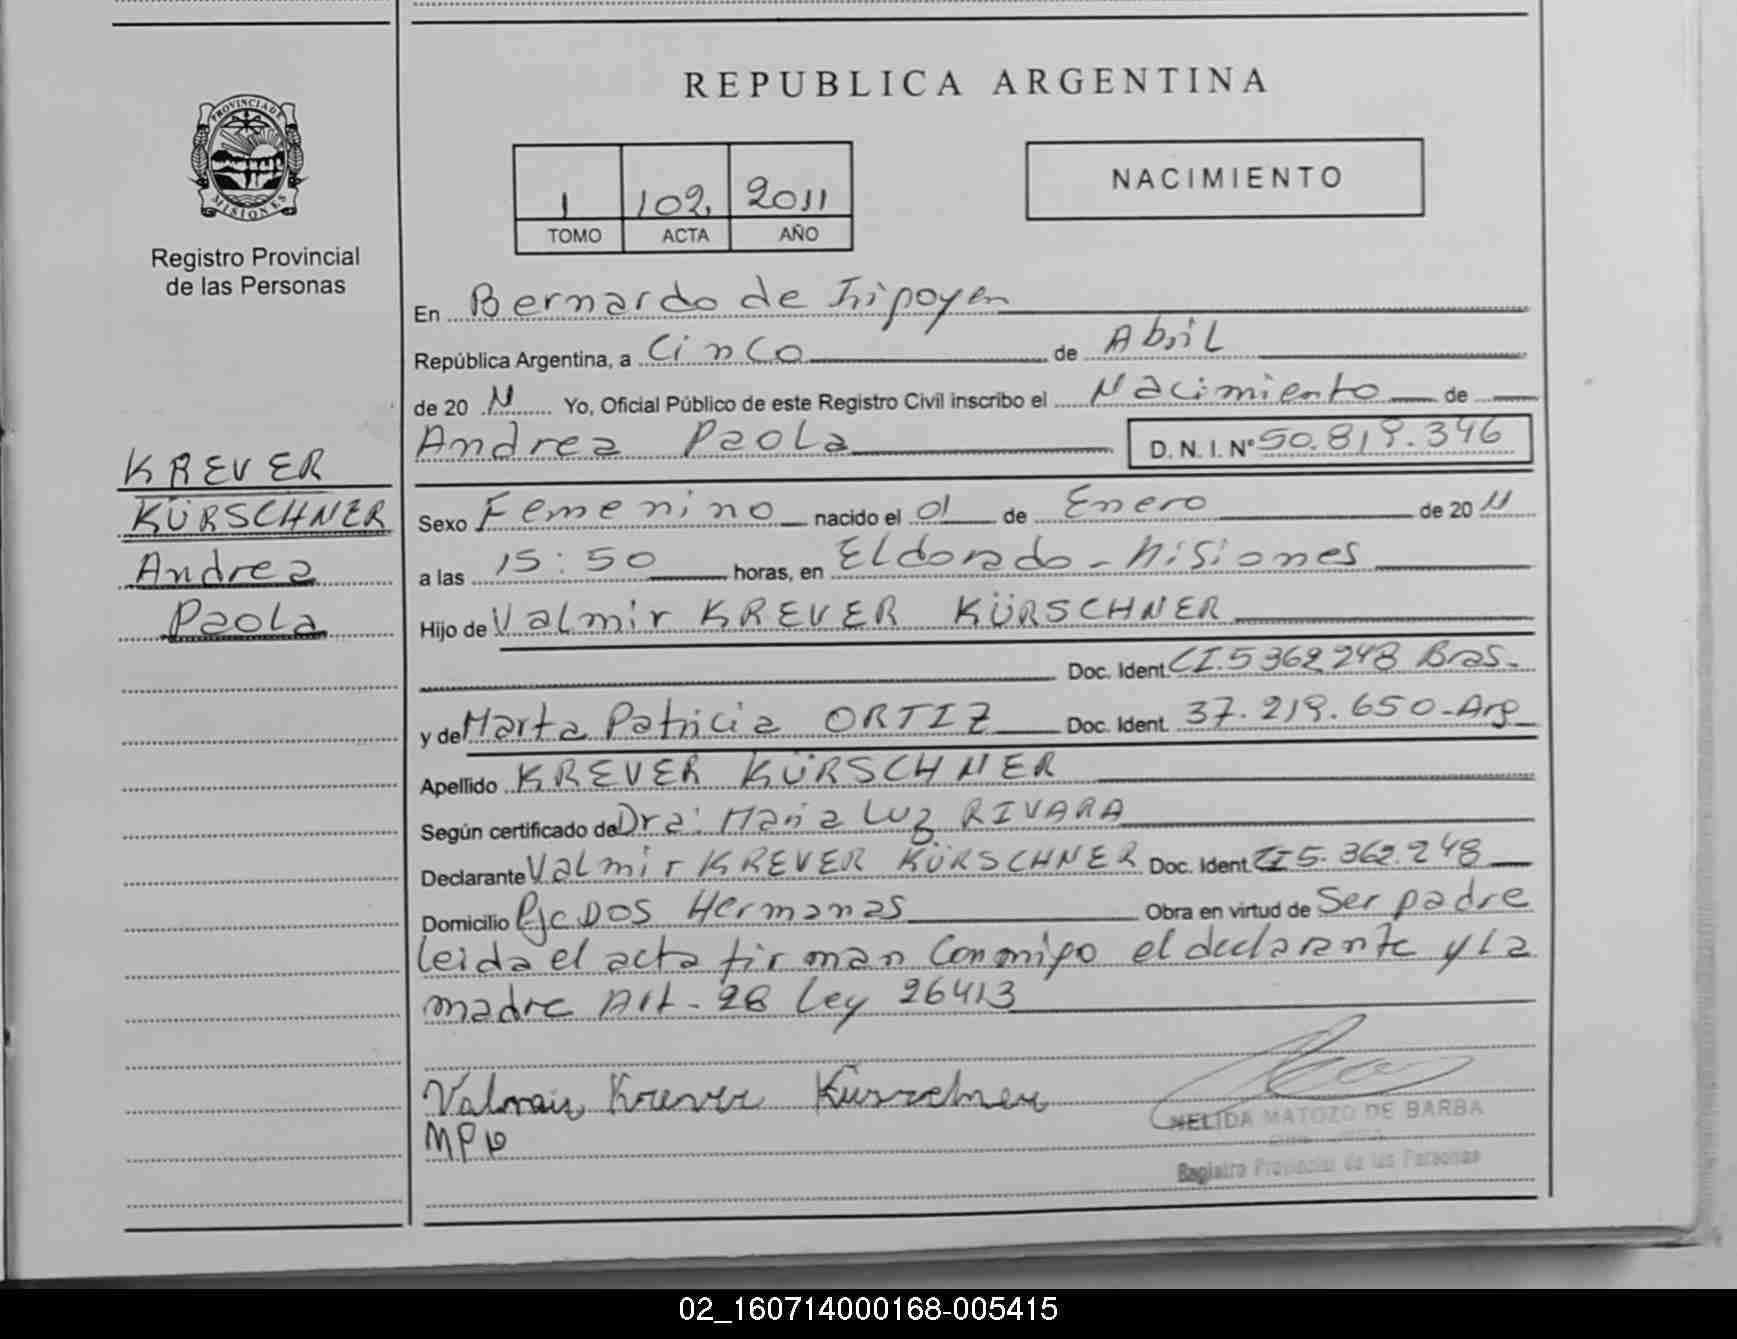 REPUBLICA ARGENTINA
PROVINCIA DE MISIONES
Registro Provincial
de las Personas
1 102 2011
TOMO ACTA AÑO
NACIMIENTO
En Bernardo de Iripoyen
República Argentina, a Cinco de Abril
de 20 11 Yo, Oficial Público de este Registro Civil inscribo el Nacimiento de
Andrea Paola D. N. I. N° 50.819.346
KREVER
KÜRSCHNER
Andrea
Paola
Sexo Femenino nacido el 01 de Enero de 20 11
a las 15:50 horas, en Eldorado - Misiones
Hijo de Valmir KREVER KÜRSCHNER
Doc. Ident. CI.5 362 248 Bras.
y de Marta Patricia ORTIZ Doc. Ident. 37.219.650-Arg
Apellido KREVER KÜRSCHNER
Según certificado de Dra: Maria Luz RIVARA
Declarante Valmir KREVER KÜRSCHNER Doc. Ident. CI 5.362.248
Domicilio Pje Dos Hermanas Obra en virtud de Ser padre
leida el acta firman Conmigo el declarante y la
madre Art-28 Ley 26413
Valmir Krever Kürschner
MPO
NELIDA MATOZO DE BARBA
Registro Provincial de las Personas
02_160714000168-005415